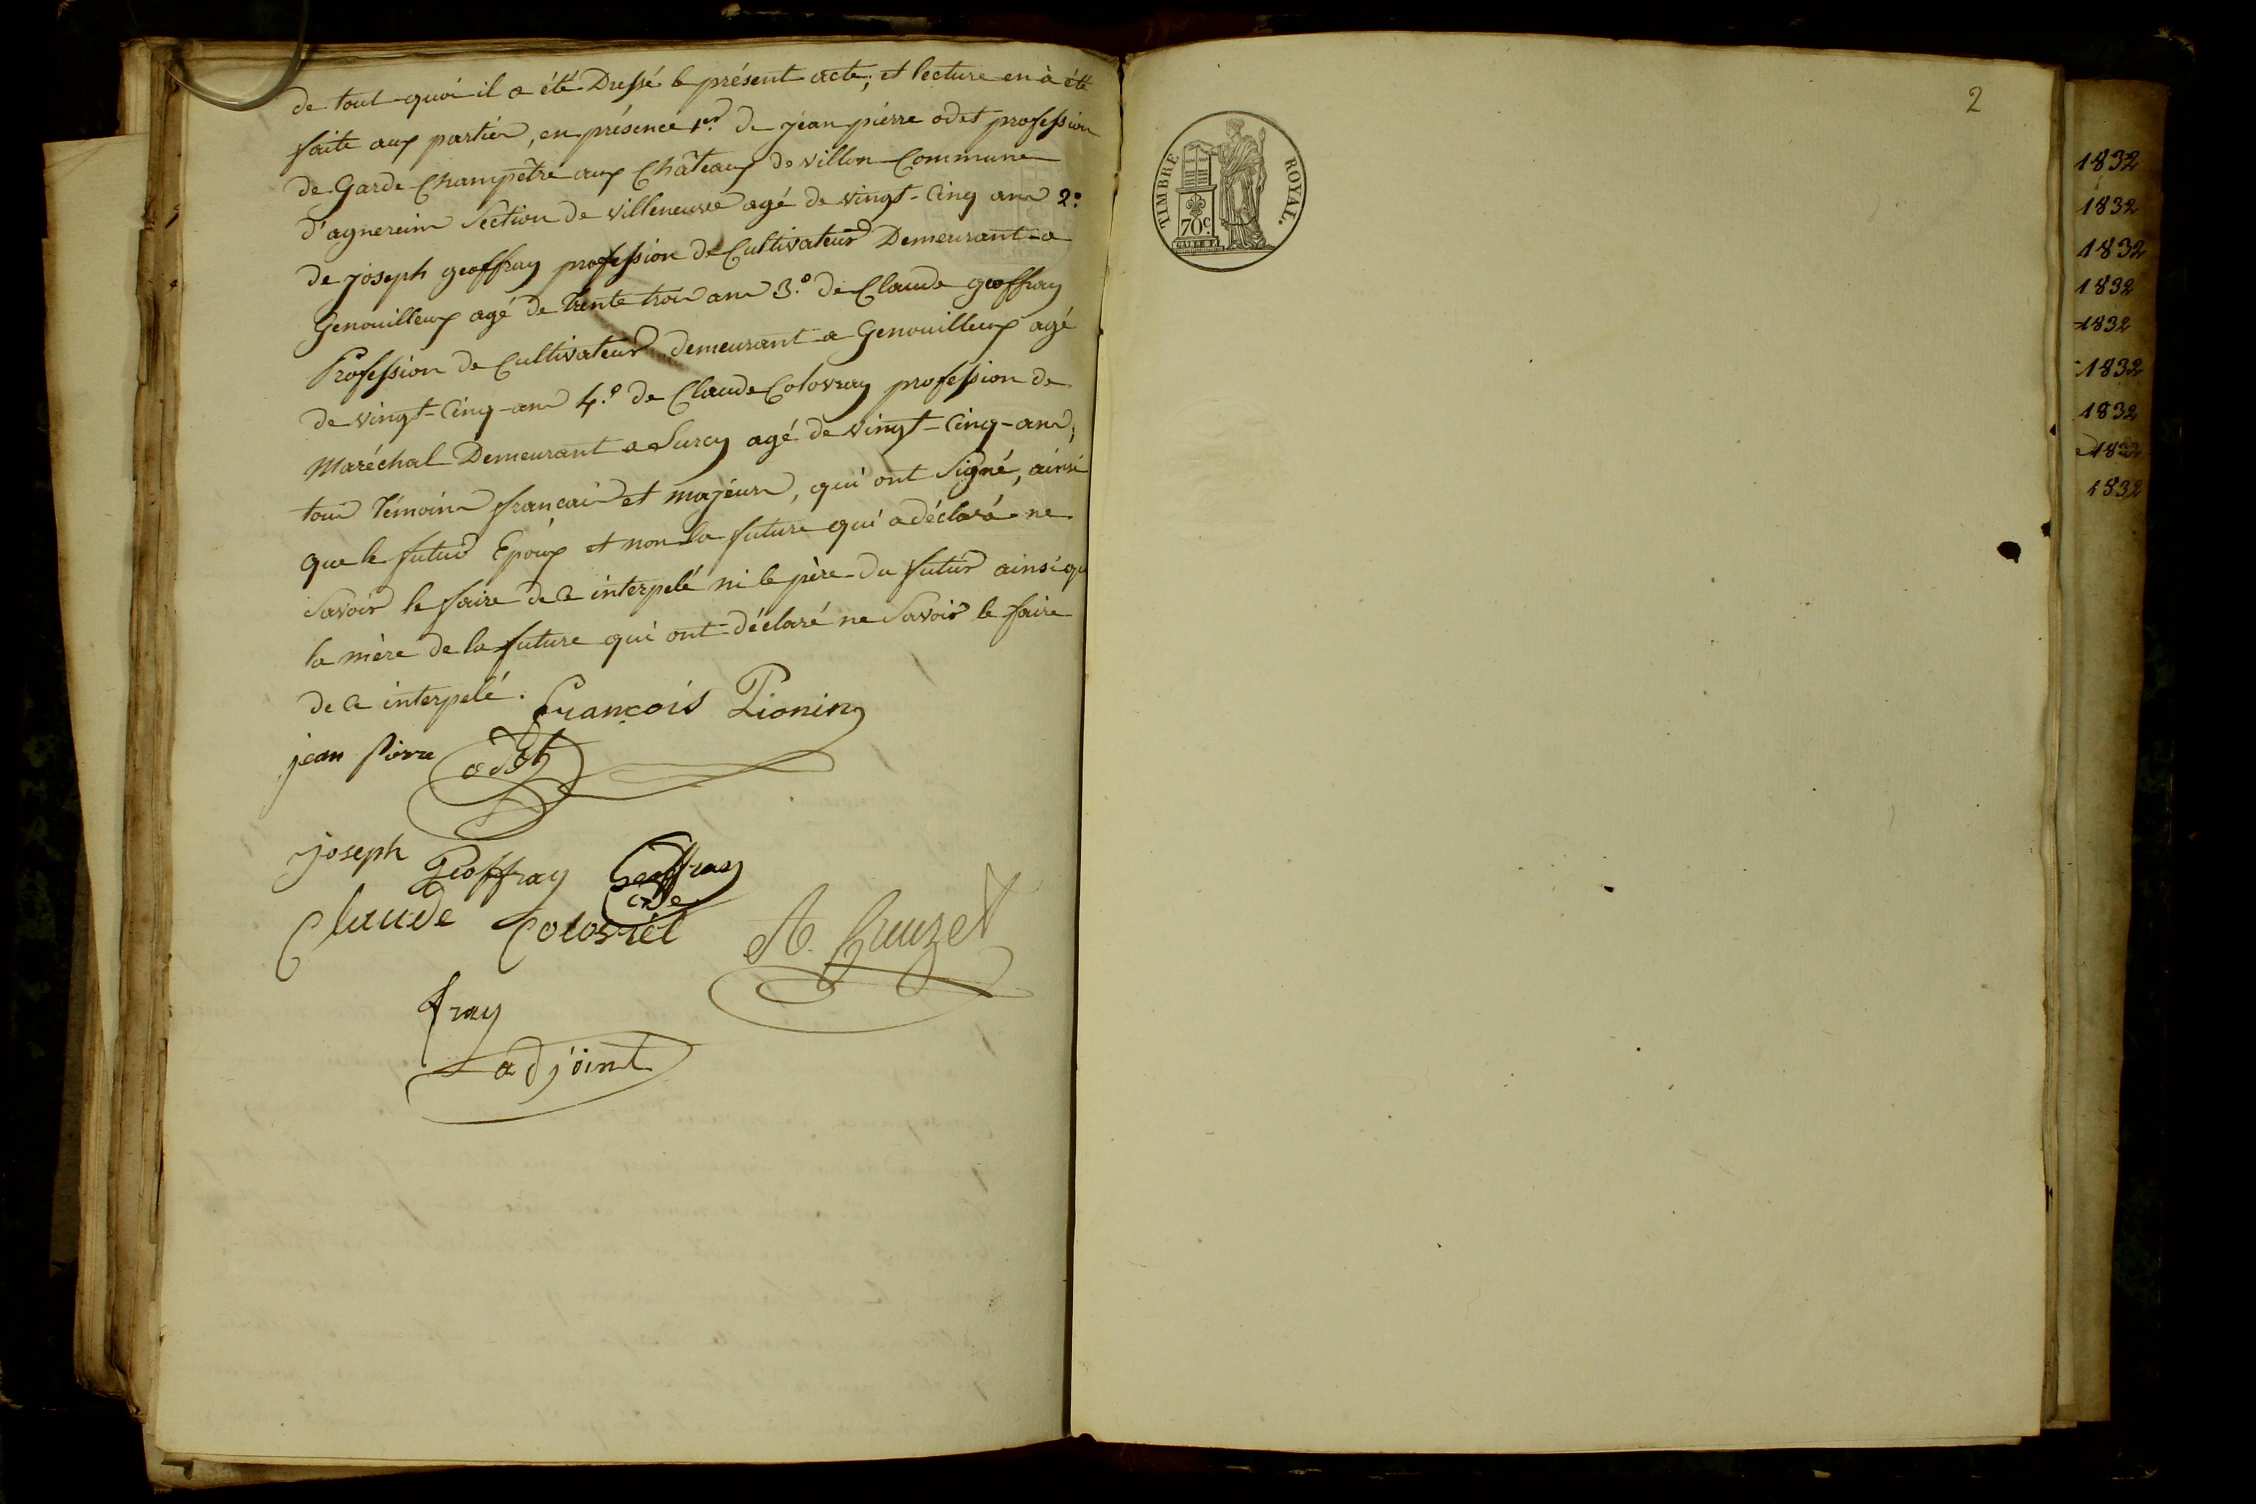 de tout quoi il a été Dressé le présent acte; et lecture en à été
faite aux parties, en présence 1er. de jean pierre odet profession
de Garde Champêtre aux Châteaux de villon Commune
d'agnereins Section de villeneuve agé de vingt-Cinq ans 2.o
de joseph geoffray profession de Cultivateur Demeurant a
Genouilleux agé de Trente trois ans 3.o de Claude geoffray
Profession de Cultivateur demeurant a Genouilleux agé
de vingt-Cinq-ans 4.o de Claude Colovray profession de
Maréchal Demeurant a Lurcy agé de vingt-Cinq-ans,
tous Témoins francais et majeurs, qui ont Signé, ainsi
que le futur Epoux et non la future qui a déclaré ne
Savoir le faire de ce interpelé ni le père du futur ainsi qu
la mère de la future qui ont déclaré ne Savoir le faire
de ce interpelé.
François Pionin
jean pierre odet
joseph Geoffray Geoffray
Cde
Claude Colovret
A. Cruzet
fray
adjoint
2
TIMBRE ROYAL.
70 c.
1832
1832
1832
1832
1832
1832
1832
1832
1832